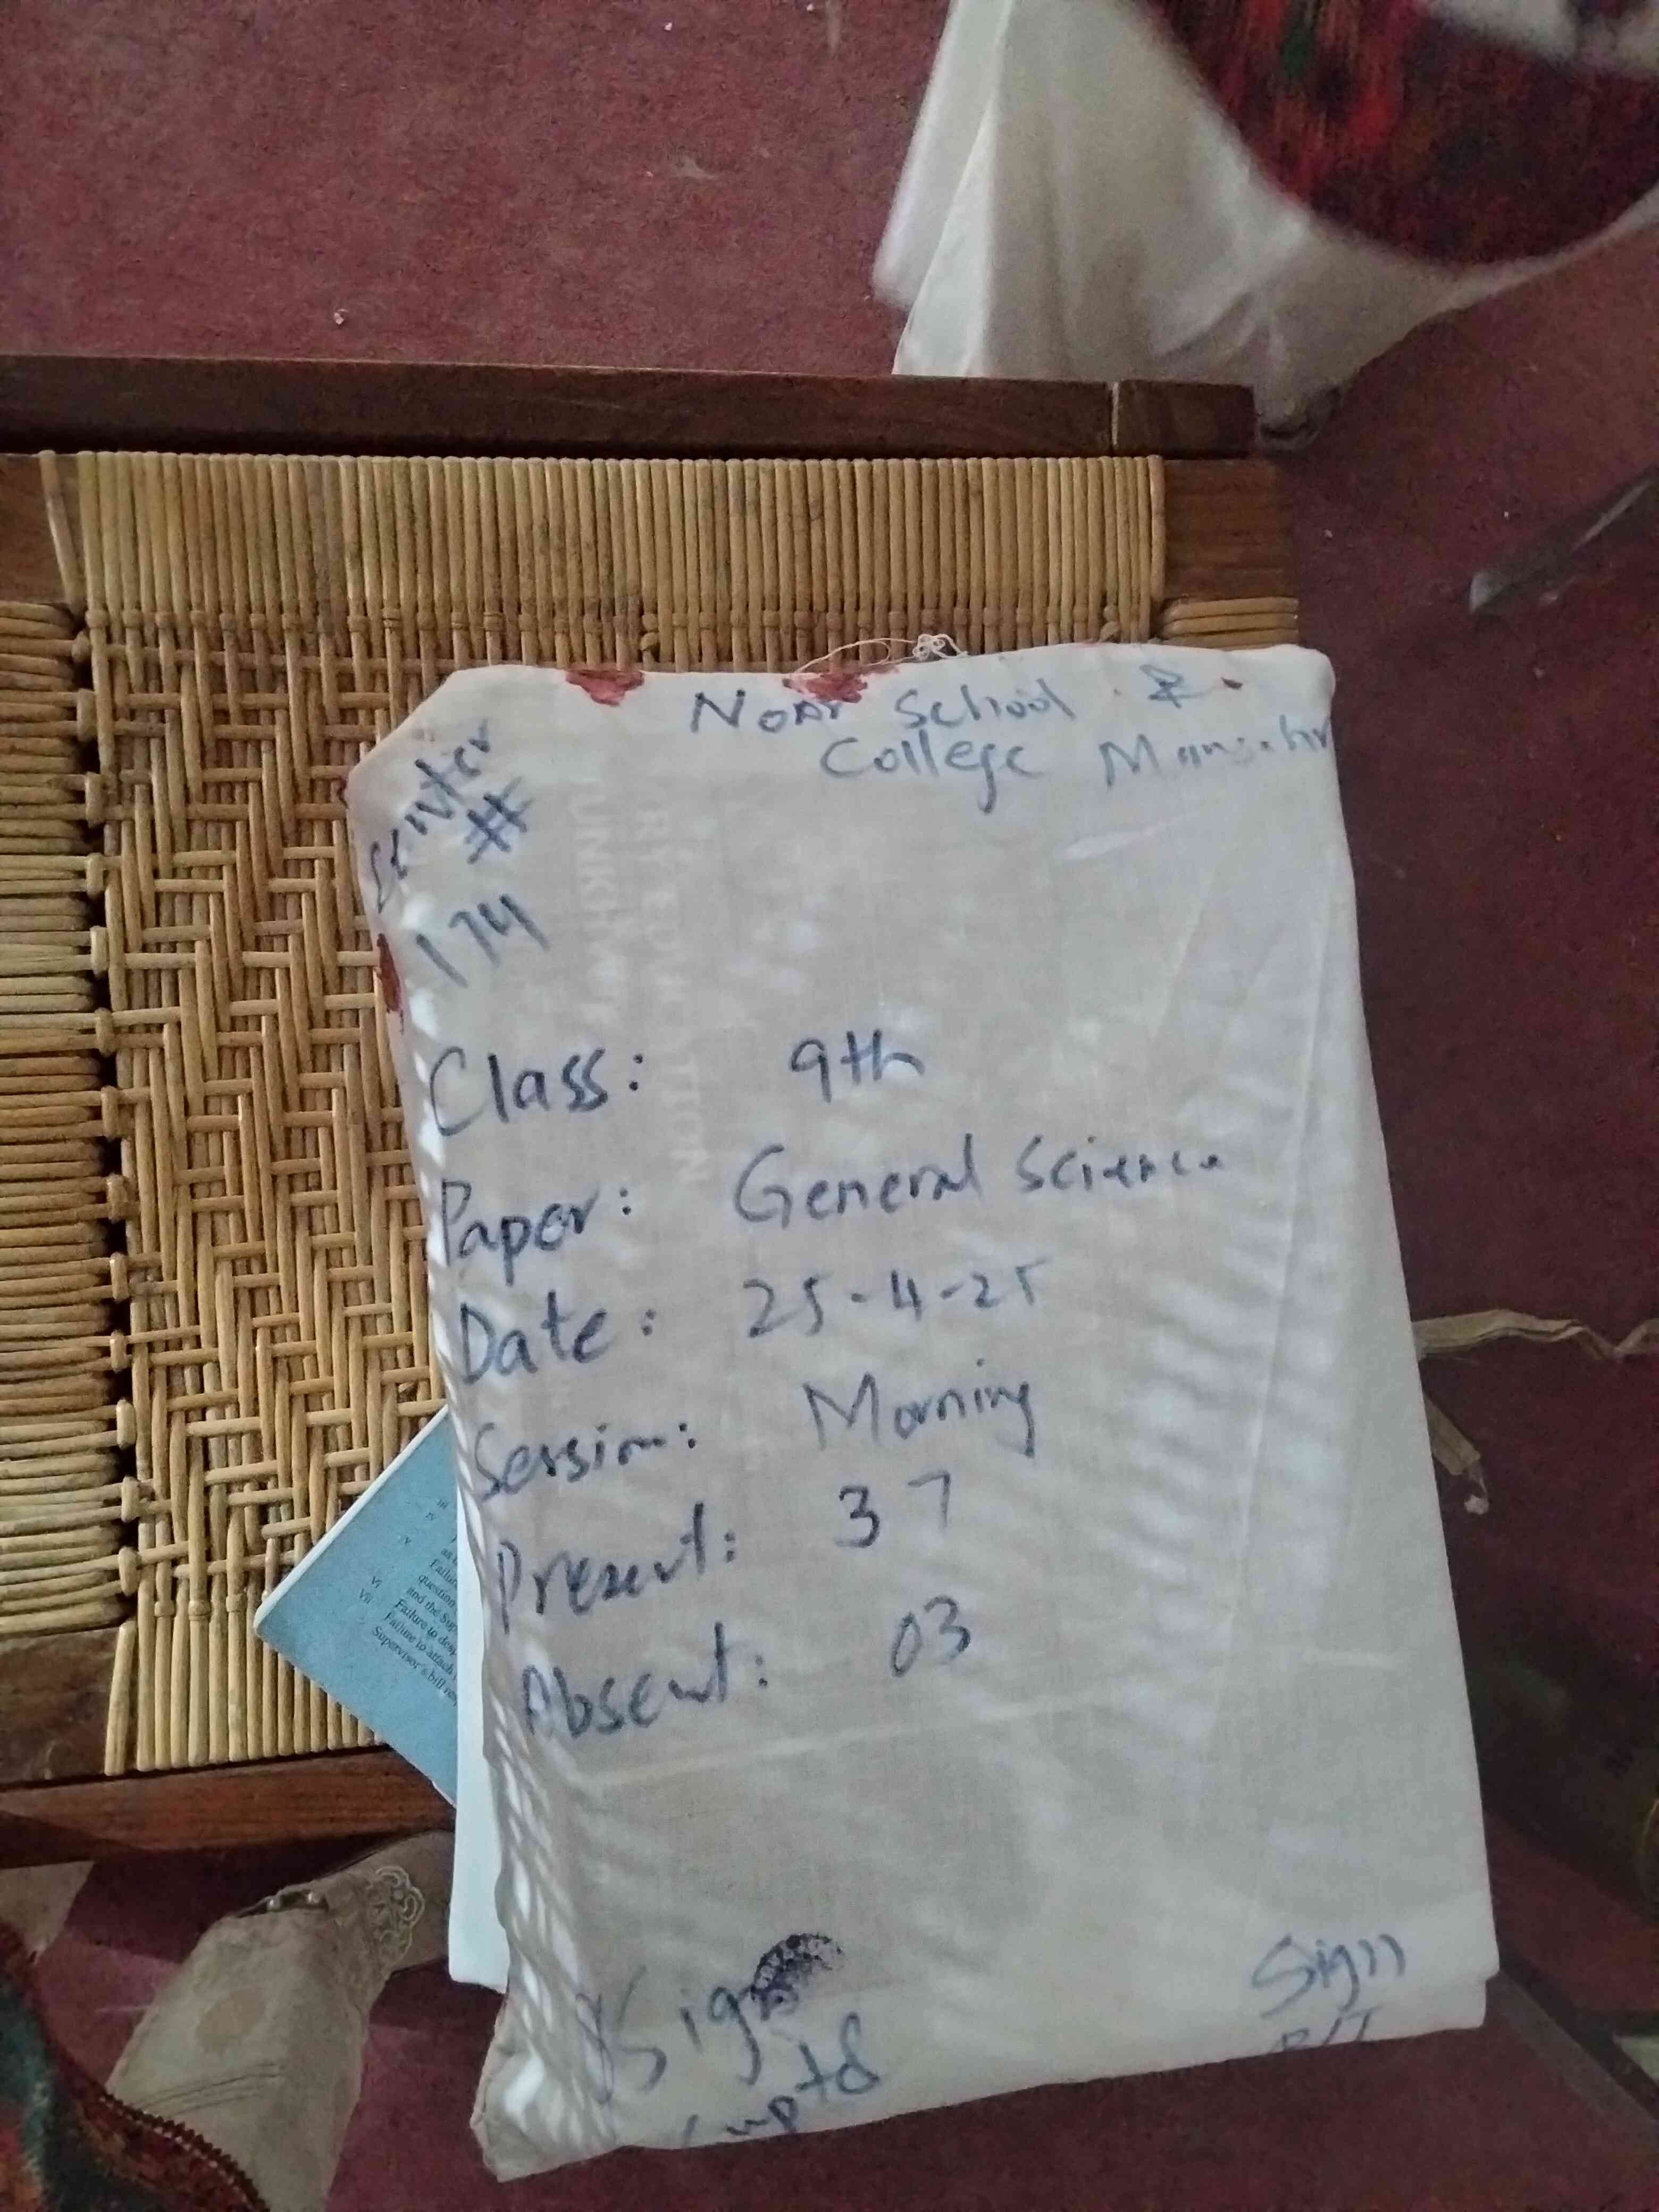 Noor School &
College Mansehra
Center
#
174
Class: 9th
Paper: General Science
Date: 25-4-25
Session: Morning
Present: 37
Absent: 03
Sign
Suptd
Sign
R/I
iii
iv
v
Failure
question
vi
and the Sup
vii
Failure to
Failure to attach
Supervisor's bill